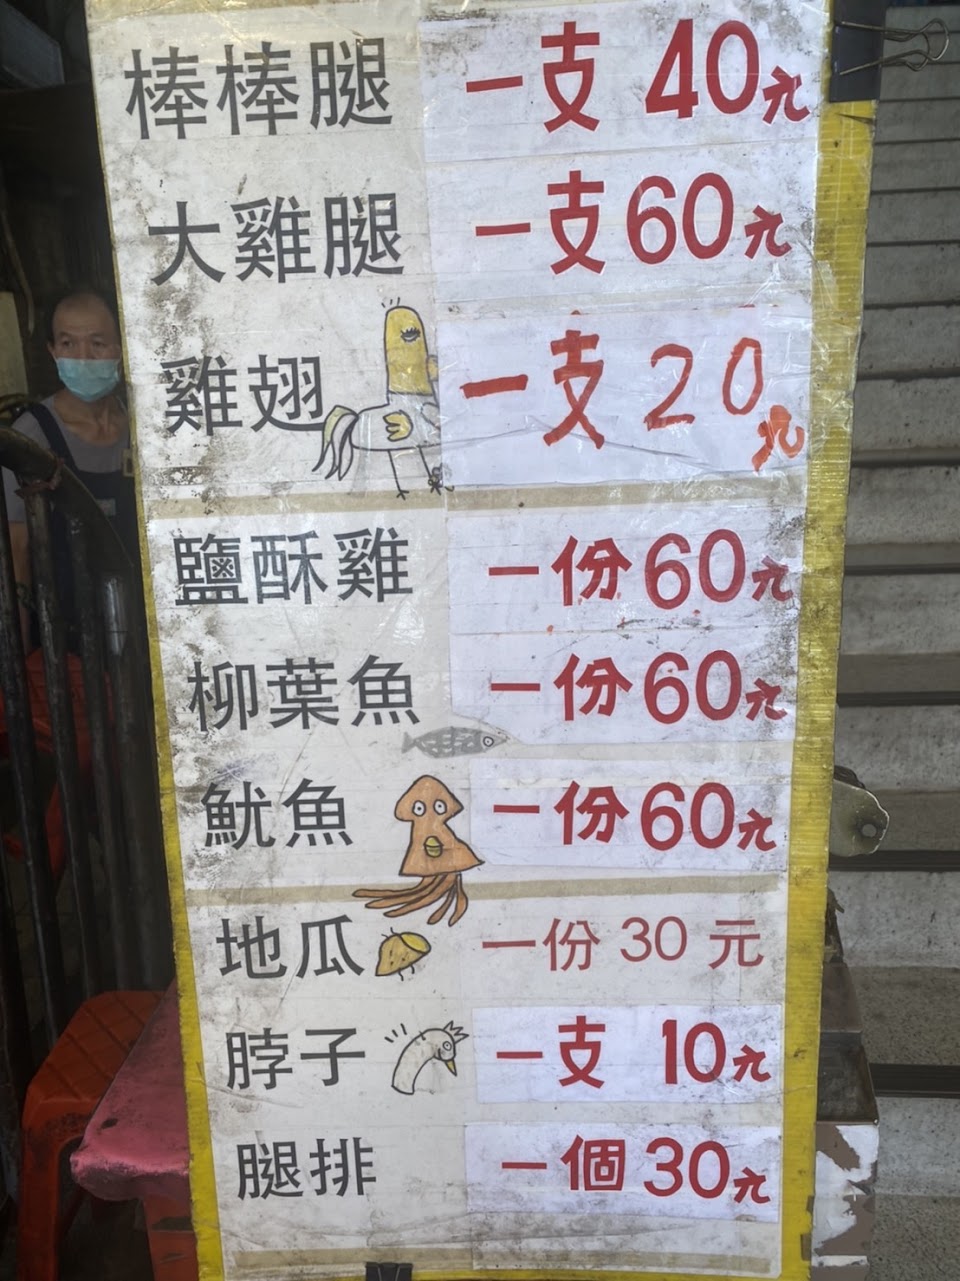 棒棒腿 一支 40元
大雞腿 一支 60元
雞翅 一支 20元
鹽酥雞 一份 60元
柳葉魚 一份 60元
魷魚 一份 60元
地瓜 一份 30 元
脖子 一支 10元
腿排 一個 30元